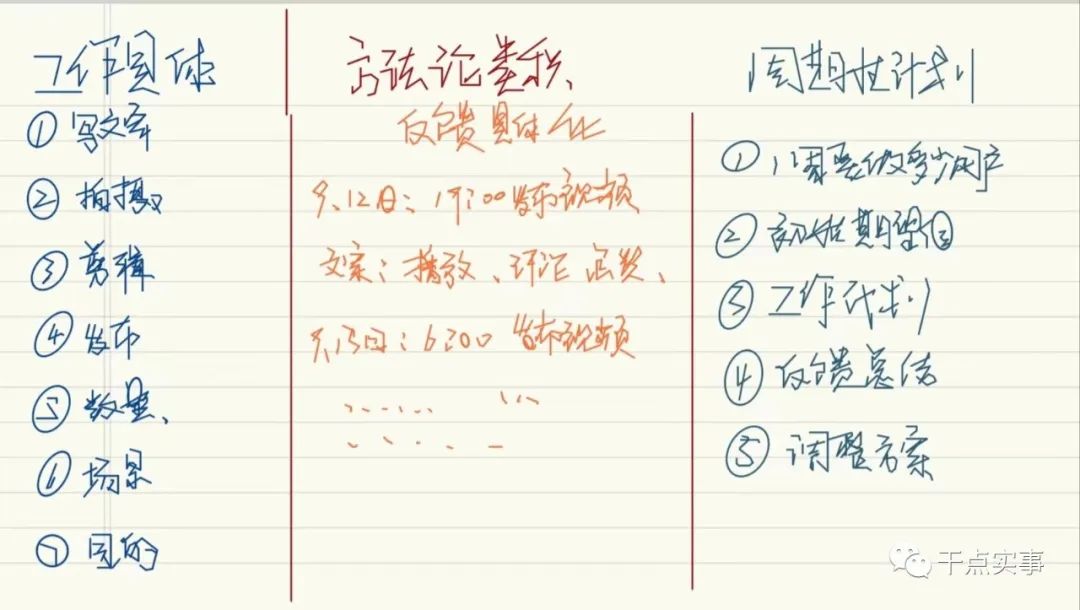 工作具体
① 写文案
② 拍摄
③ 剪辑
④ 发布
⑤ 数量、
⑥ 场景
⑦ 目的
方法论累积、
反馈具体化
5.12日：17:00发布视频
文案：播放、评论 点赞、
5.13日：6:00 发布视频
周期性计划
① 1周要做多少用户
② 初始期望值
③ 工作计划
④ 反馈总结
⑤ 调整方案
干点实事